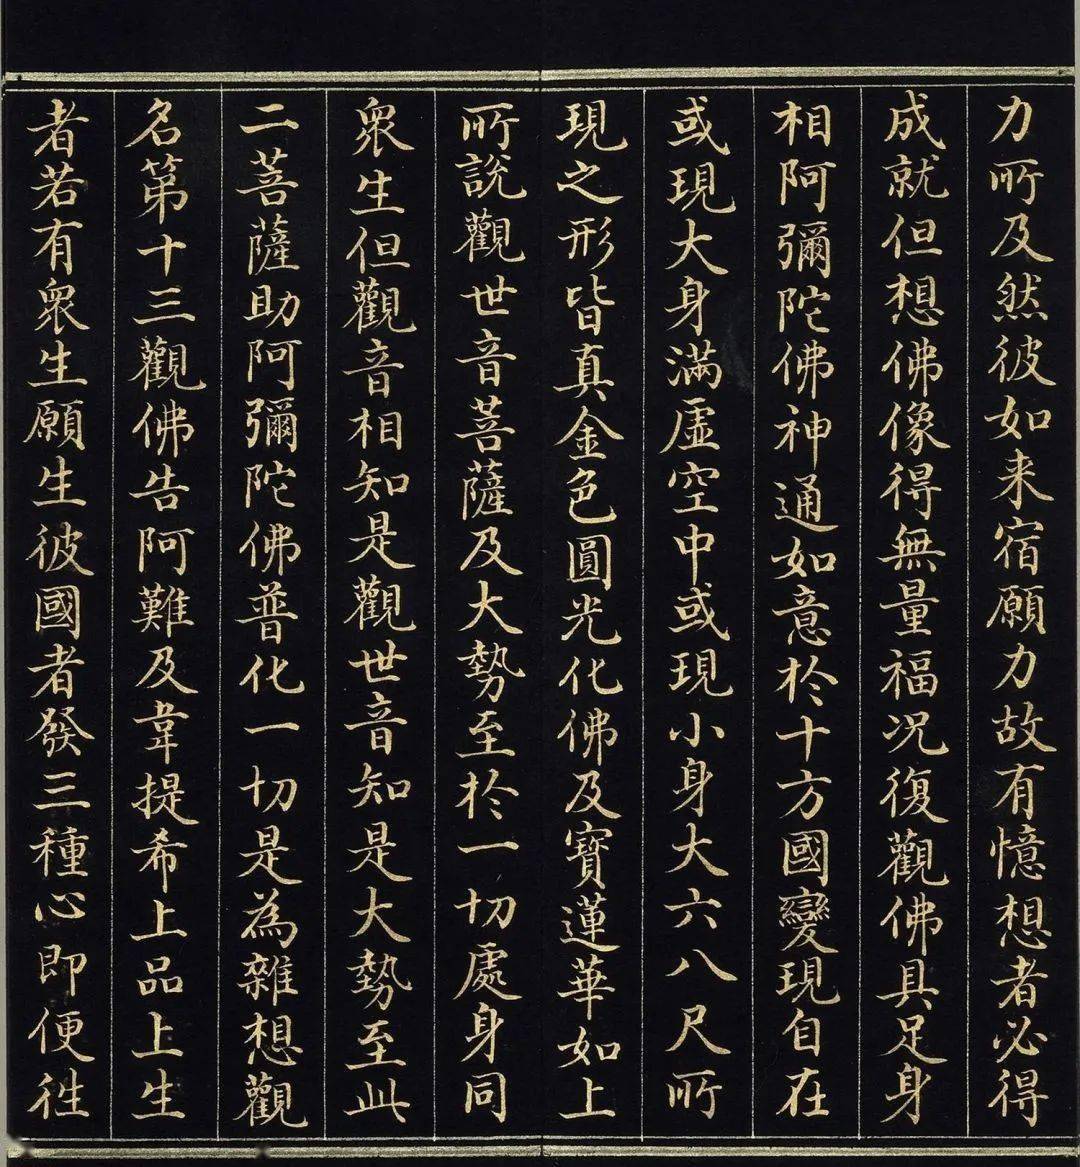 力所及然彼如来宿願力故有憶想者必得
成就但想佛像得無量福况復觀佛具足身
相阿彌陀佛神通如意於十方國變現自在
或現大身滿虛空中或現小身大六八尺所
現之形皆真金色圓光化佛及寶蓮華如上
所說觀世音菩薩及大勢至於一切處身同
衆生但觀音相知是觀世音知是大勢至此
二菩薩助阿彌陀佛普化一切是為雜想觀
名第十三觀佛告阿難及韋提希上品上生
者若有衆生願生彼國者發三種心即便往